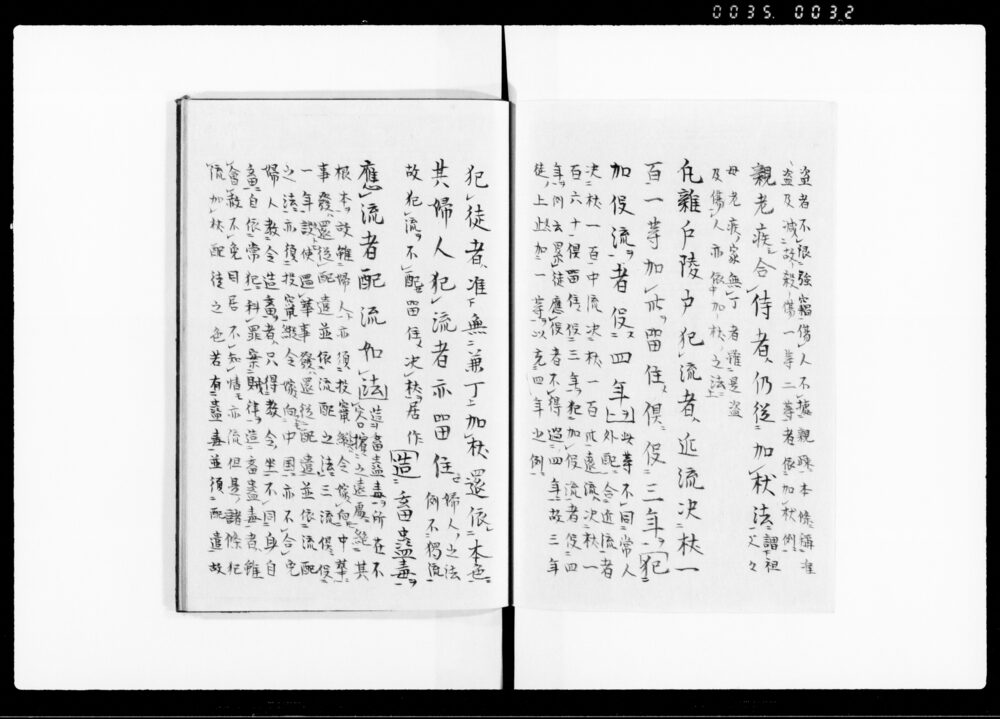 0035. 0032
盗者不限強竊傷人不據親疎本條稱准
盗及減故殺傷一等二等者依加杖例
親老疾合侍者仍從加杖法謂祖父々
母老疾家無丁者唯是盗
及傷人亦依中加杖之法上
凡雜戸陵戸犯流者近流决杖一
百一等加卅留住俱役三年犯
加役流者役四年此等不同常人外配合近流者
决杖一百中流决杖一百卅遠流决杖一
百六十俱留住役三年犯加役流者役四
年問云累徒應役者不得過四年故三年
徒上止加一等以充四年之例
犯徒者准無兼丁加杖還依本色
其婦人犯流者亦留住婦人之法例不獨流
故犯流不配留住决杖居作造畜蠱毒
應流者配流如法造畜蠱毒所在不容擯之遠處絶其
根本故雖婦人亦須投竄縱令嫁向中華
事發還從配遣並依流配之法三流俱役
一年設使遇華事發還從配遣並依流配
之法亦須投竄縱令嫁向中国亦不合宅
婦人教令造畜者只得教令坐不同身自
畜自依常犯科罪案賊律造畜蠱毒者雖
會赦不免同居不知情亦流但是諸條犯
流加杖配徒之色若有蠱毒並須配遣故